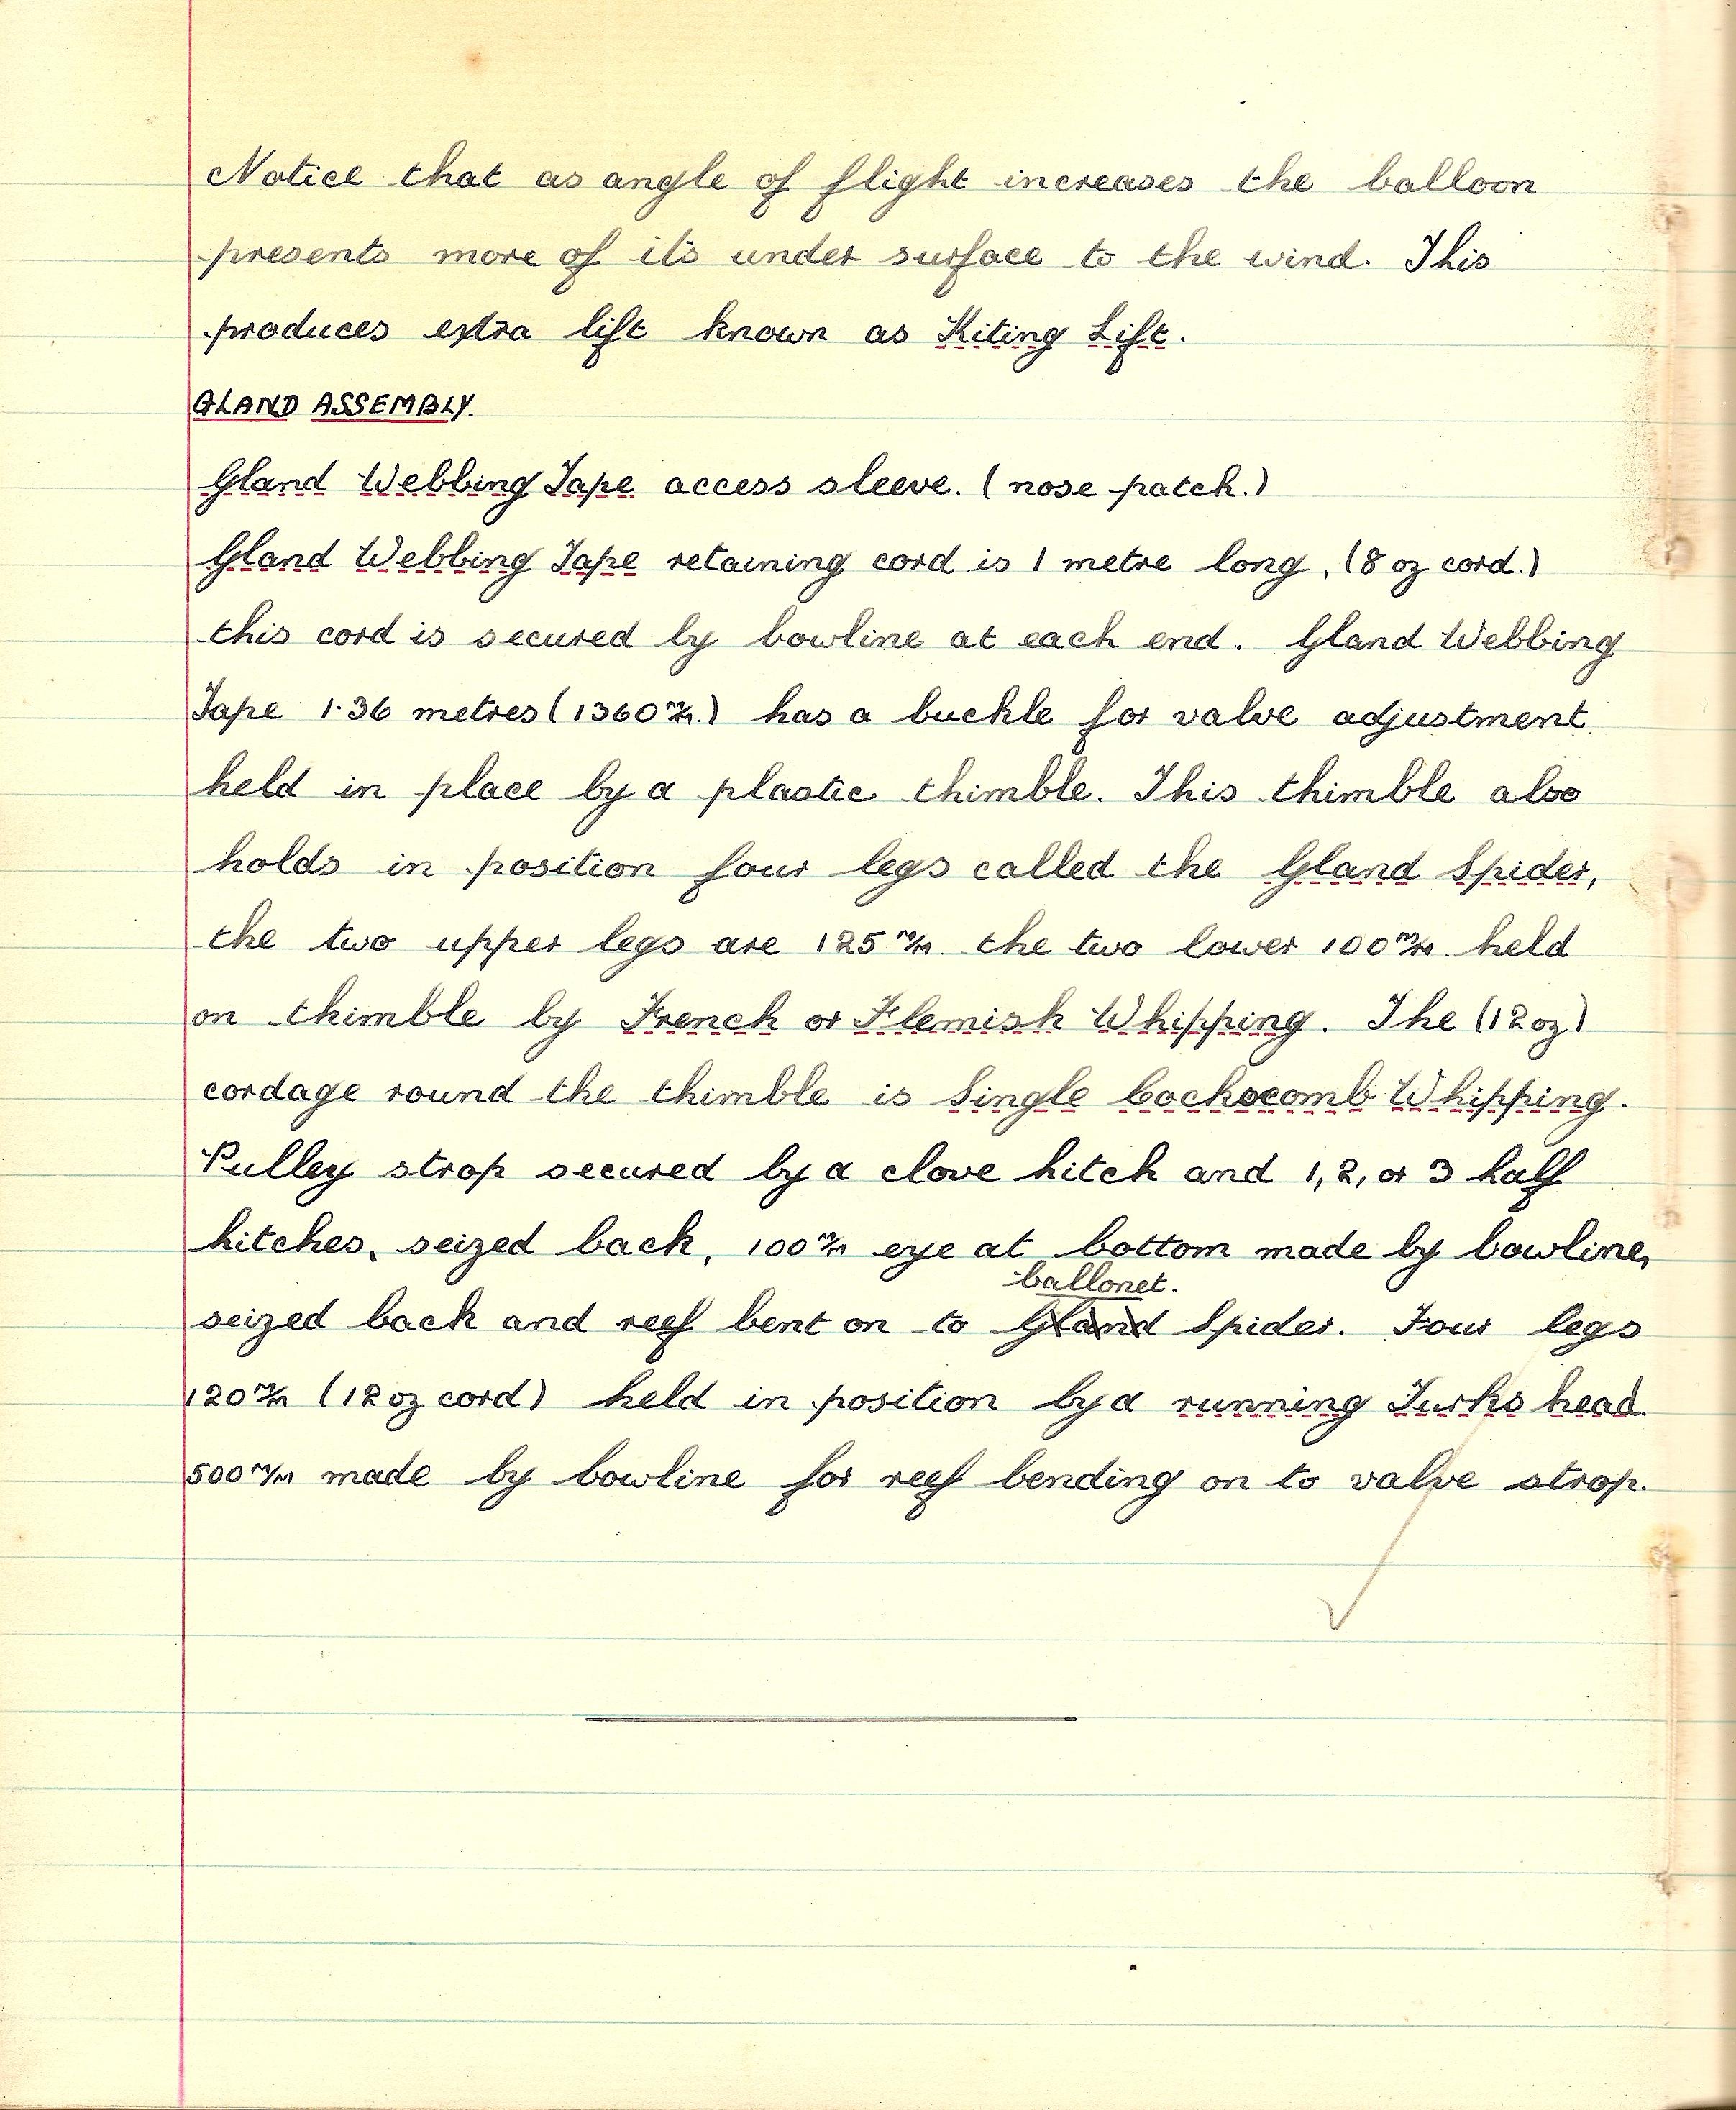 Notice that as angle of flight increases the balloon
presents more of its under surface to the wind. This
produces extra lift known as Kiting Lift.
GLAND ASSEMBLY.
Gland Webbing Tape access sleeve. (nose patch.)
Gland Webbing Tape retaining cord is 1 metre long, (8 oz cord.)
this cord is secured by bowline at each end. Gland Webbing
Tape 1·36 metres (1360 m/m.) has a buckle for valve adjustment
held in place by a plastic thimble. This thimble also
holds in position four legs called the Gland Spider,
the two upper legs are 125 m/m. the two lower 100 m/m. held
on thimble by French or Flemish Whipping. The (12 oz)
cordage round the thimble is Single Cockscomb Whipping.
Pulley strop secured by a clove hitch and 1, 2, or 3 half
hitches, seized back, 100 m/m eye at bottom made by bowline,
ballonet.
seized back and reef bent on to Gland Spider. Four legs
120 m/m (12 oz cord) held in position by a running Turks head.
500 m/m made by bowline for reef bending on to valve strop.